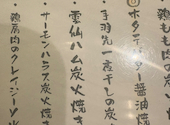 鶏もも肉の炭
ホタテバター醤油焼
・手羽先一夜干しの炭
雲仙ハム炭火焼き
・サーモンハラス炭火焼き
鶏肩肉のクレイジーソル